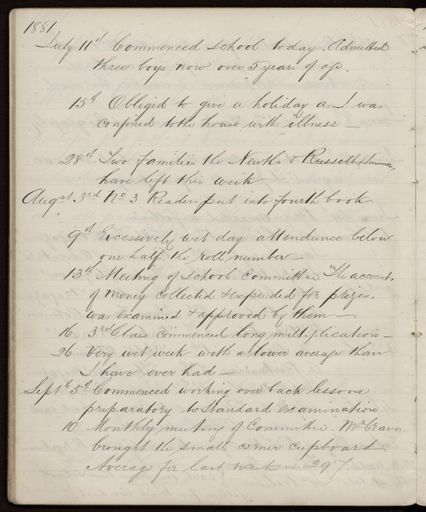 1881
July 11th Commenced School to day. Admitted
three boys now over 5 years of age.
15th Obliged to give a holiday as I was
confined to the house with illness —
28th Two families the Newths & Russells
have left this week
Augst 3rd No 3 Readers put into fourth book
9th Excessively wet day attendance below
one half the roll number —
13th Meeting of School Committee The accounts
of money collected & expended for prizes
was examined & approved by them —
16 3rd Class commenced long multiplication —
26 Very wet week with a lower average than
I have ever had —
Septr 5th Commenced working over back lessons
preparatory to Standard Examination
10 Monthly meeting of Committee. Mr Craven
brought the small corner cupboard
Average for last week = 29.7